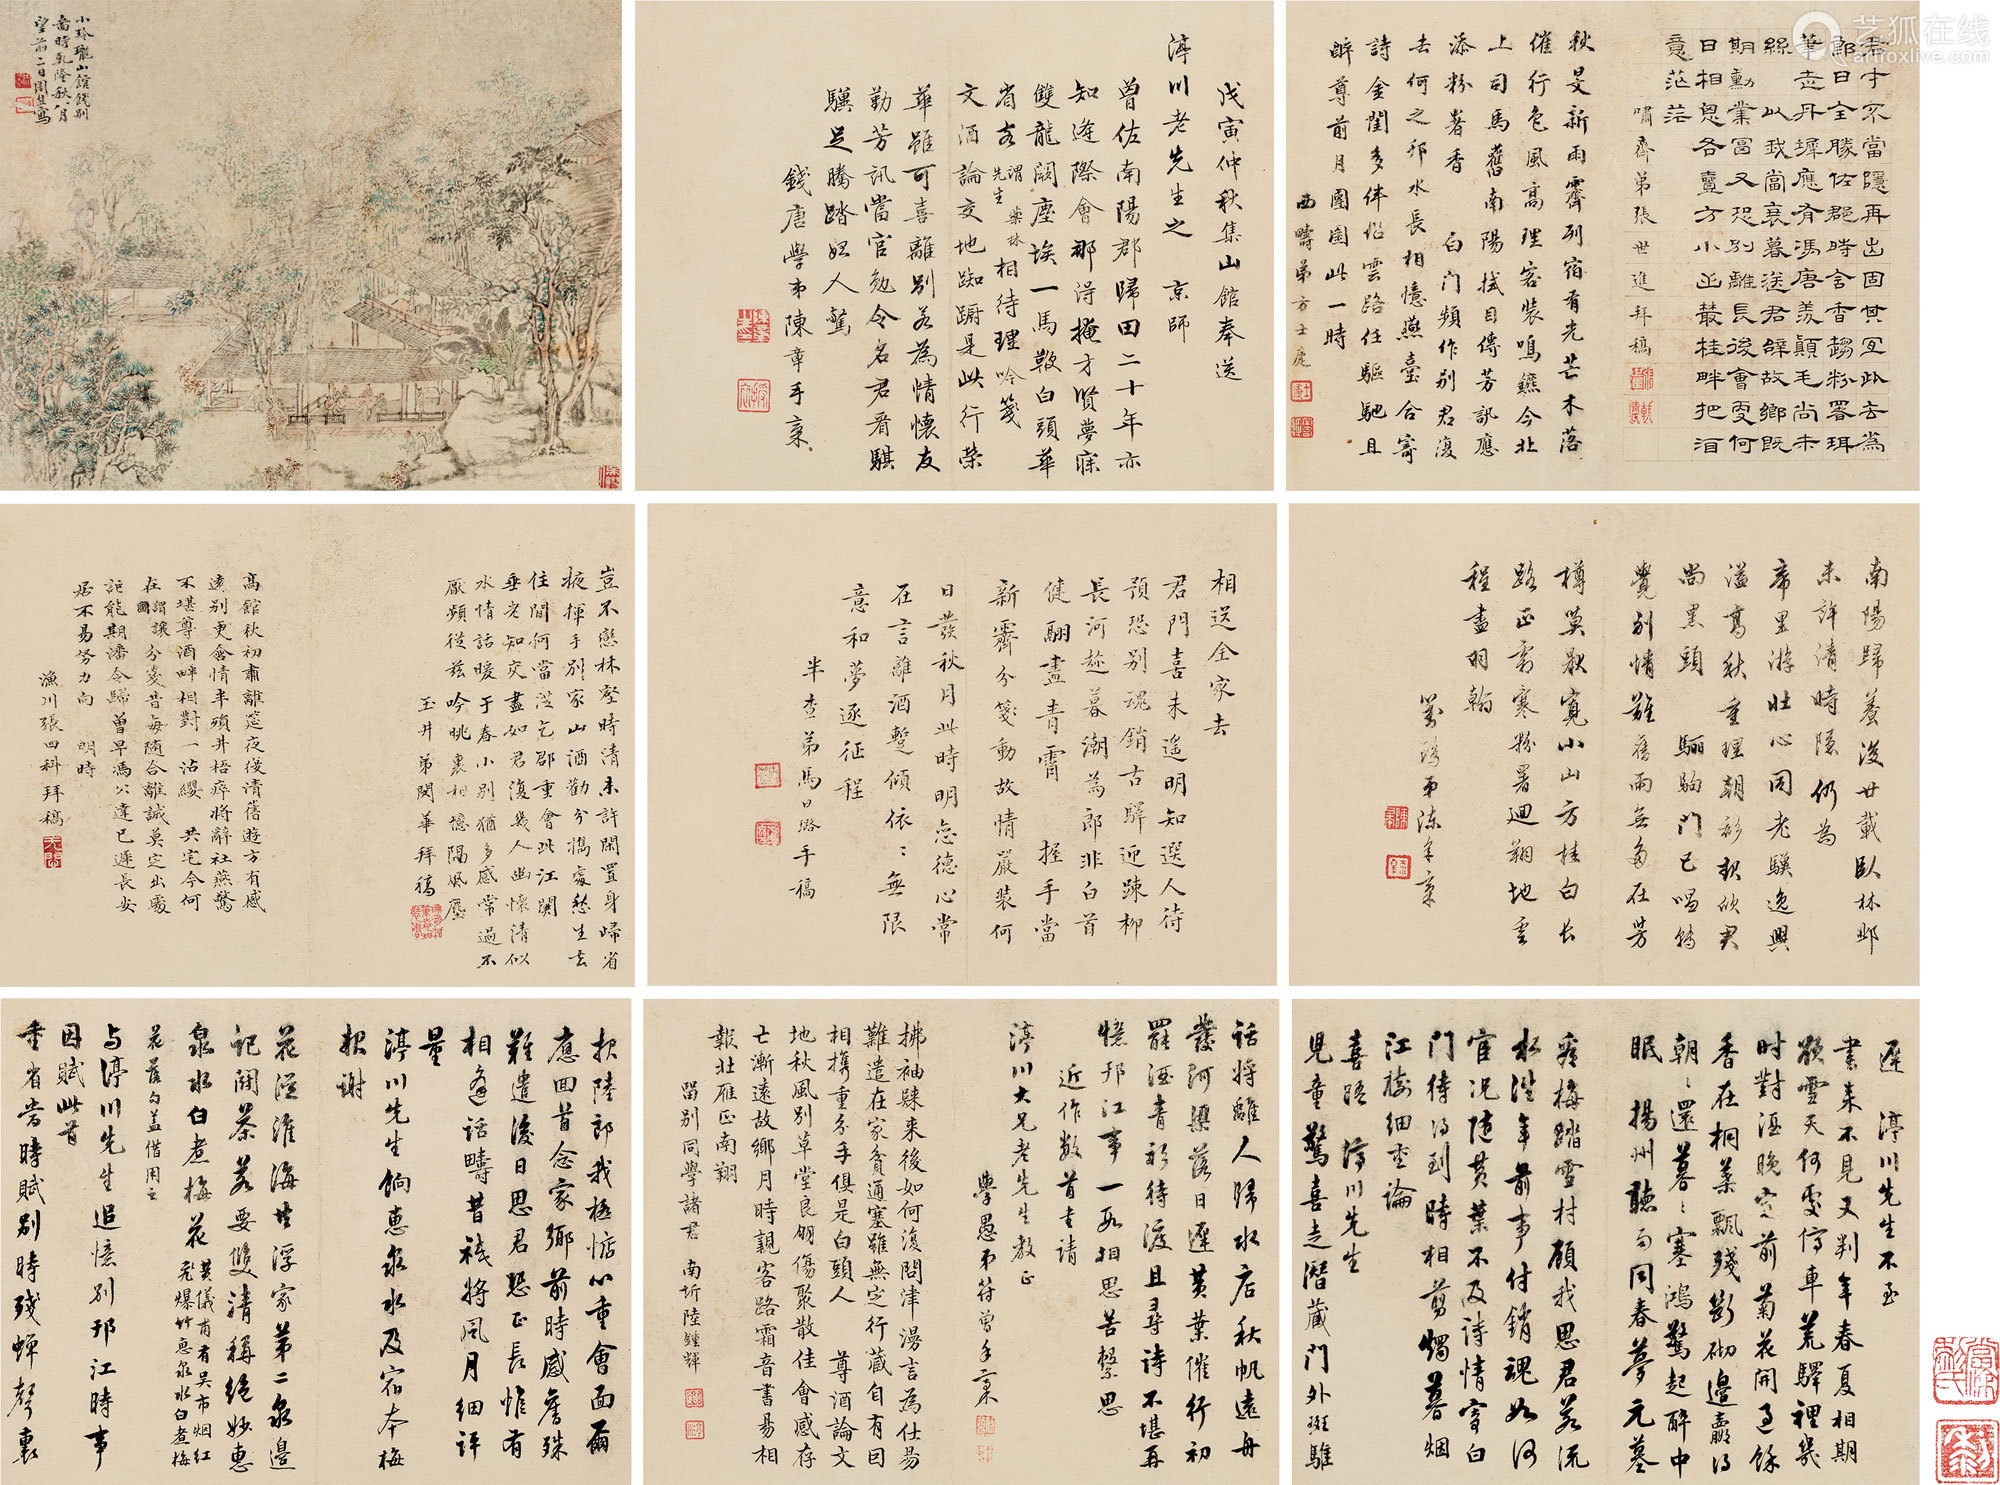 小玲瓏山館餞別
圖時乾隆秋八月
望前二日周生寫
戊寅仲秋集山館奉送
渟川老先生之 京師
曾佐南陽郡歸田二十年亦
知逢際會那得掩才賢夢寐
雙龍闕塵埃一馬鞍白頭華
省客謂藥林先生相待理吟箋
文酒論交地踟躕是此行榮
華雖可喜離別若為情懷友
勤芳訊當官勉令名君看騏
驥足騰踏妬人驚
錢唐學弟陳章手稾
君才不當隱再出固其宜此去為
郎日全勝佐郡時含香趨粉署珥
筆丹墀應有馮唐羨顛毛尚未
絲 以我當衰暮送君辭故鄉既
期勳業富又恐別離長後會更何
日相思各壹方小山叢桂畔把酒
意茫茫
嘯齋弟張世進拜稿
秋旻新雨霽列宿有光芒木落
催行色風高理客裝鳴鑣今北
上司馬舊南陽拭目傳芳訊應
添粉署香 白门頻作別君復
去何之邗水長相憶燕臺合寄
詩金閨多侍從雲路任驅馳且
醉尊前月團圞此一時
西疇弟方士庶
豈不戀林壑時清未許閑置身歸省
掖揮手別家山酒勸分攜處愁生去
住間何當從乞郡重會此江関
垂老知交盡如君復幾人幽懷清似
水情話暖于春小別猶多感常過不
厭頻從茲吟眺裏相憶隔風塵
玉井弟閔華拜稿
高館秋初肅離筵夜復清舊遊方有感
遠別更含情半殞井梧瘁將辭社燕驚
不堪尊酒畔相對一沾纓 共宅今何
在謂讓圃分箋昔每隨合離誠莫定出處
詎能期潘令歸曾早馮公達已遲長安
居不易努力向 明時
漁川張四科拜稿
相送全家去
君門喜未遙明知選人待
預恐別魂銷古驛迎疎柳
長河趁暮潮為郎非白首
健翮盡青霄 握手當
新霽分箋動故情嚴裝何
日發秋月此時明忘德心常
在言離酒蹔傾依〻無限
意和夢逐征程
半查弟馬曰璐手稿
南陽歸養後廿載臥林邱
未許清時隱仍為
帝里游壯心同老驥逸興
溢高秋重理朝衫欣君
尚黑頭 驪駒門已唱轉
覺別情難舊雨無多在芳
樽莫厭寬小山方桂白長
路正霜寒粉署迴翔地雲
程盡羽翰
弟陳稾
報陸郎我極惦心重會面爾
應回首念家鄉前時感舊殊
難遣後日思君恐正長惟有
相逢話疇昔襪將風月細評
量
渟川先生餉惠泉水及宿本梅
報謝
花溼淮海共浮家第二泉邊
記鬪茶若要雙清稱絕妙惠
泉水白煮梅花
花蓋借用之
与渟川先生追憶別邗江時事
因賦此首
重省當時賦別時殘蟬聲裏
話將離人歸水店秋帆遠舟
發河梁落日遲黃葉催行初
罷酒青衫待渡且尋詩不堪再
憶邗江事一段相思苦繫思
近作數首書請
渟川大兄老先生教正
學愚弟符曾手稾
拂袖歸來後如何復問津漫言為仕易
難遣在家貧通塞雖無定行藏自有因
相携重分手俱是白頭人 尊酒論文
地秋風別草堂良朋傷聚散佳會感存
亡漸遠故鄉月時親客路霜音書易相
報北雁正南翔
留別同學諸君 南圻陸鍾輝
遲 渟川先生不至
書來不見又判年春夏相期
欲雪天何處停車荒驛裡幾
時對酒晚窗前菊花開過餘
香在桐葉飄殘斷砌邊贏得
朝〻還暮〻塞鴻驚起醉中
眠 揚州聽雨同春夢元墓
尋梅踏雪村顧我思君若流
水涉年前事付銷魂如何
官况随黃葉不及詩情寄白
門待得到時相剪燭暮烟
江樹細重論
喜晤 渟川先生
兒童驚喜走潛藏門外斑騅